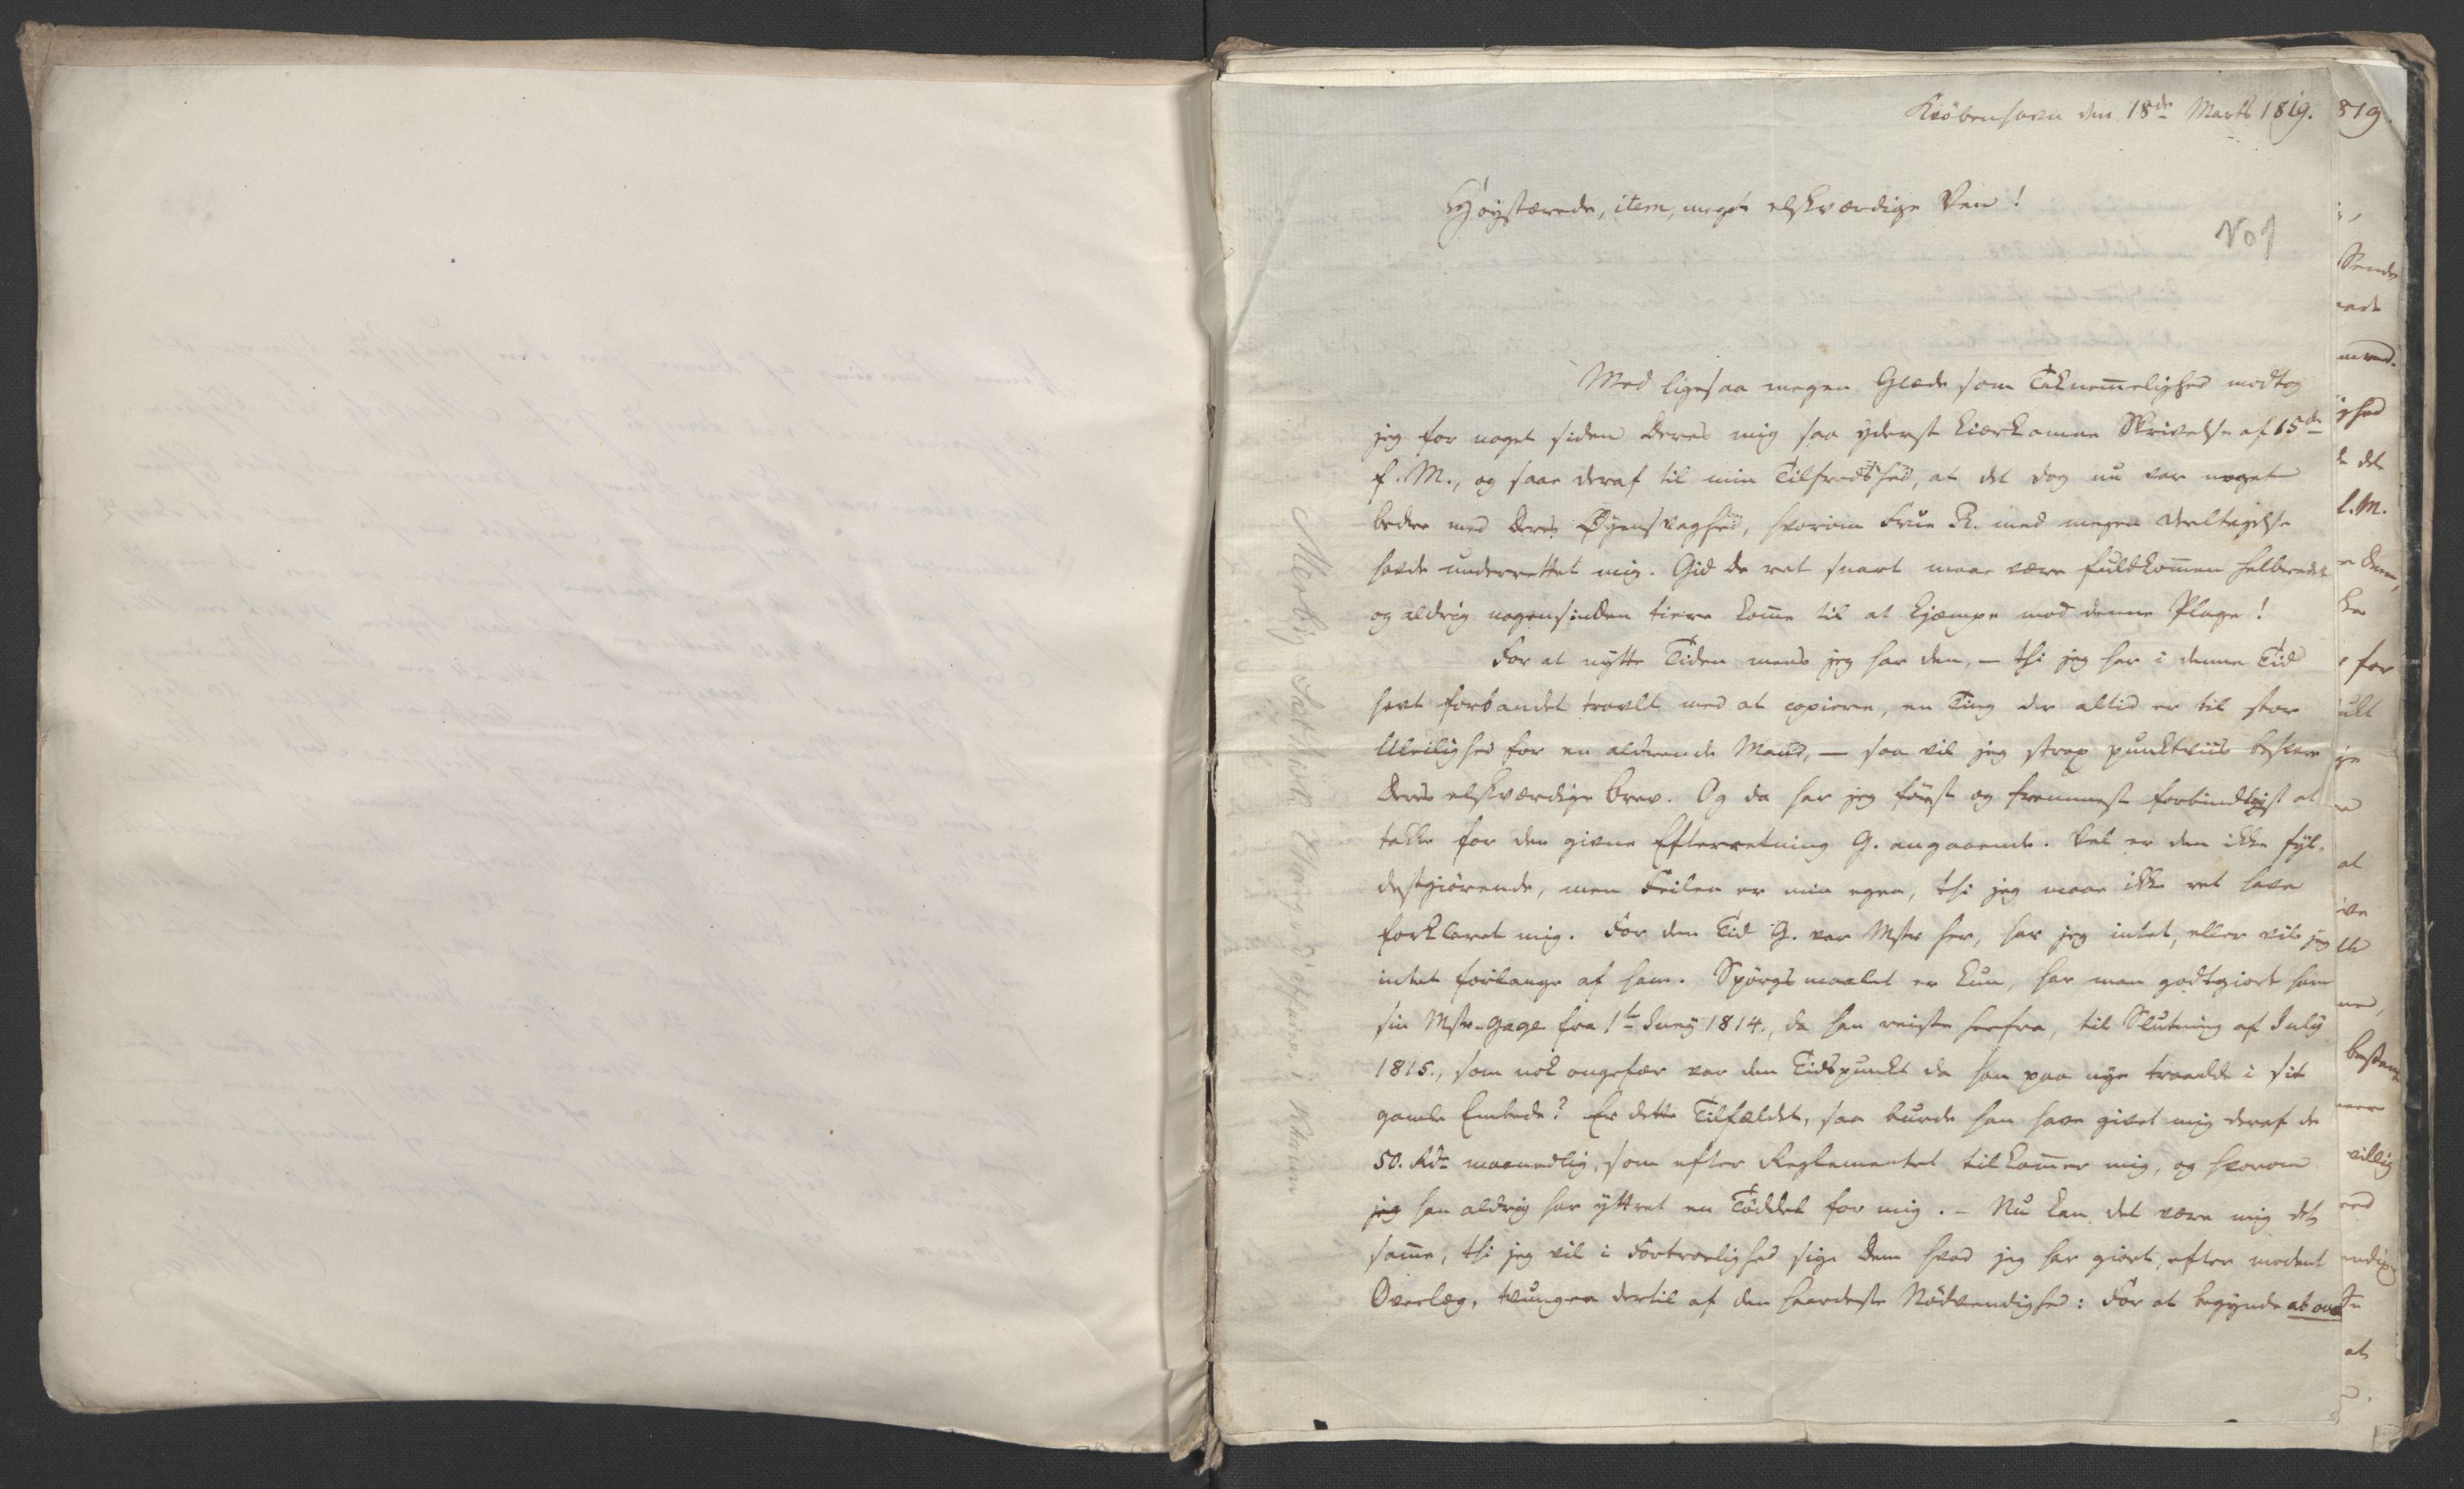 Kiöbenhavn den 18de Marts 1819.
Høystærede, item, meget elskværdige Ven!
No 9
Med ligesaa megen Glæde som Taknemelighed modtog
jeg for noget siden Deres mig saa yderst kiærkomne Skrivelse af 15de
f. M., og saae deraf til min Tilfredshed, at det dog nu var noget
bedre med Deres Øyensvaghed, hvorom Frue R. med megen Deeltagelse
havde underrettet mig. Gid De ret snart maae være fuldkommen helbredet
og aldrig nogensinden tiere komme til at kjæmpe mod denne Plage!
For at nytte Tiden mens jeg har den, — thi jeg har i denne Tid
havt forbandet travlt med at copiere, en Ting der altid er til stor
Uleilighed for en aldrende Mand, — saa vil jeg strax punktviis besvare
Deres elskværdige Brev. Og da har jeg først og fremmest forbindtligst at
takke for den givne Efterretning G. angaaende. Vel er den ikke fyl-
destgiörende, men Feilen er min egen, thi jeg maae ikke ret have
forklaret mig. For den Tid G. var Mstr her, har jeg intet, eller vil jeg
intet forlange af ham. Spörgsmaalet er kun, har man godtgiort ham
sin Mstr-Gage fra 1te Juny 1814., da han reiste herfra, til Slutning af July
1815., som nok ongefær var den Tidspunkt da han paa nye traadde i sit
gamle Embede? Er dette Tilfældet, saa burde han have givet mig deraf de
50. Rdr maanedlig, som efter Reglementet tilkommer mig, og hvorom
jeg han aldrig har yttret en Tøddel for mig. – Nu kan det være mig det
samme, thi jeg vil i Fortroelighed sige Dem hvad jeg har giort, efter modent
Overlæg, tvungen dertil af den haardeste Nödvendighed: For at begynde ab ovo
819.
Sende
f. M.
for
at
villig
at